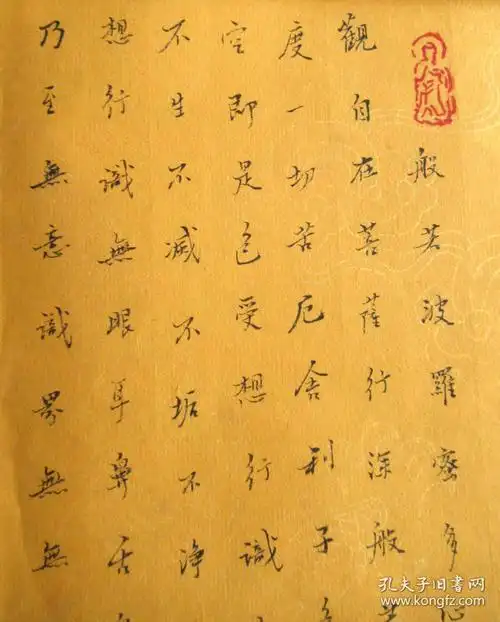 般若波羅蜜多心
觀自在菩薩行深般
度一切苦厄舍利子
空即是色受想行識
不生不滅不垢不淨
想行識無眼耳鼻舌
乃至無意識界無無
孔夫子旧书网
www.kongfz.com